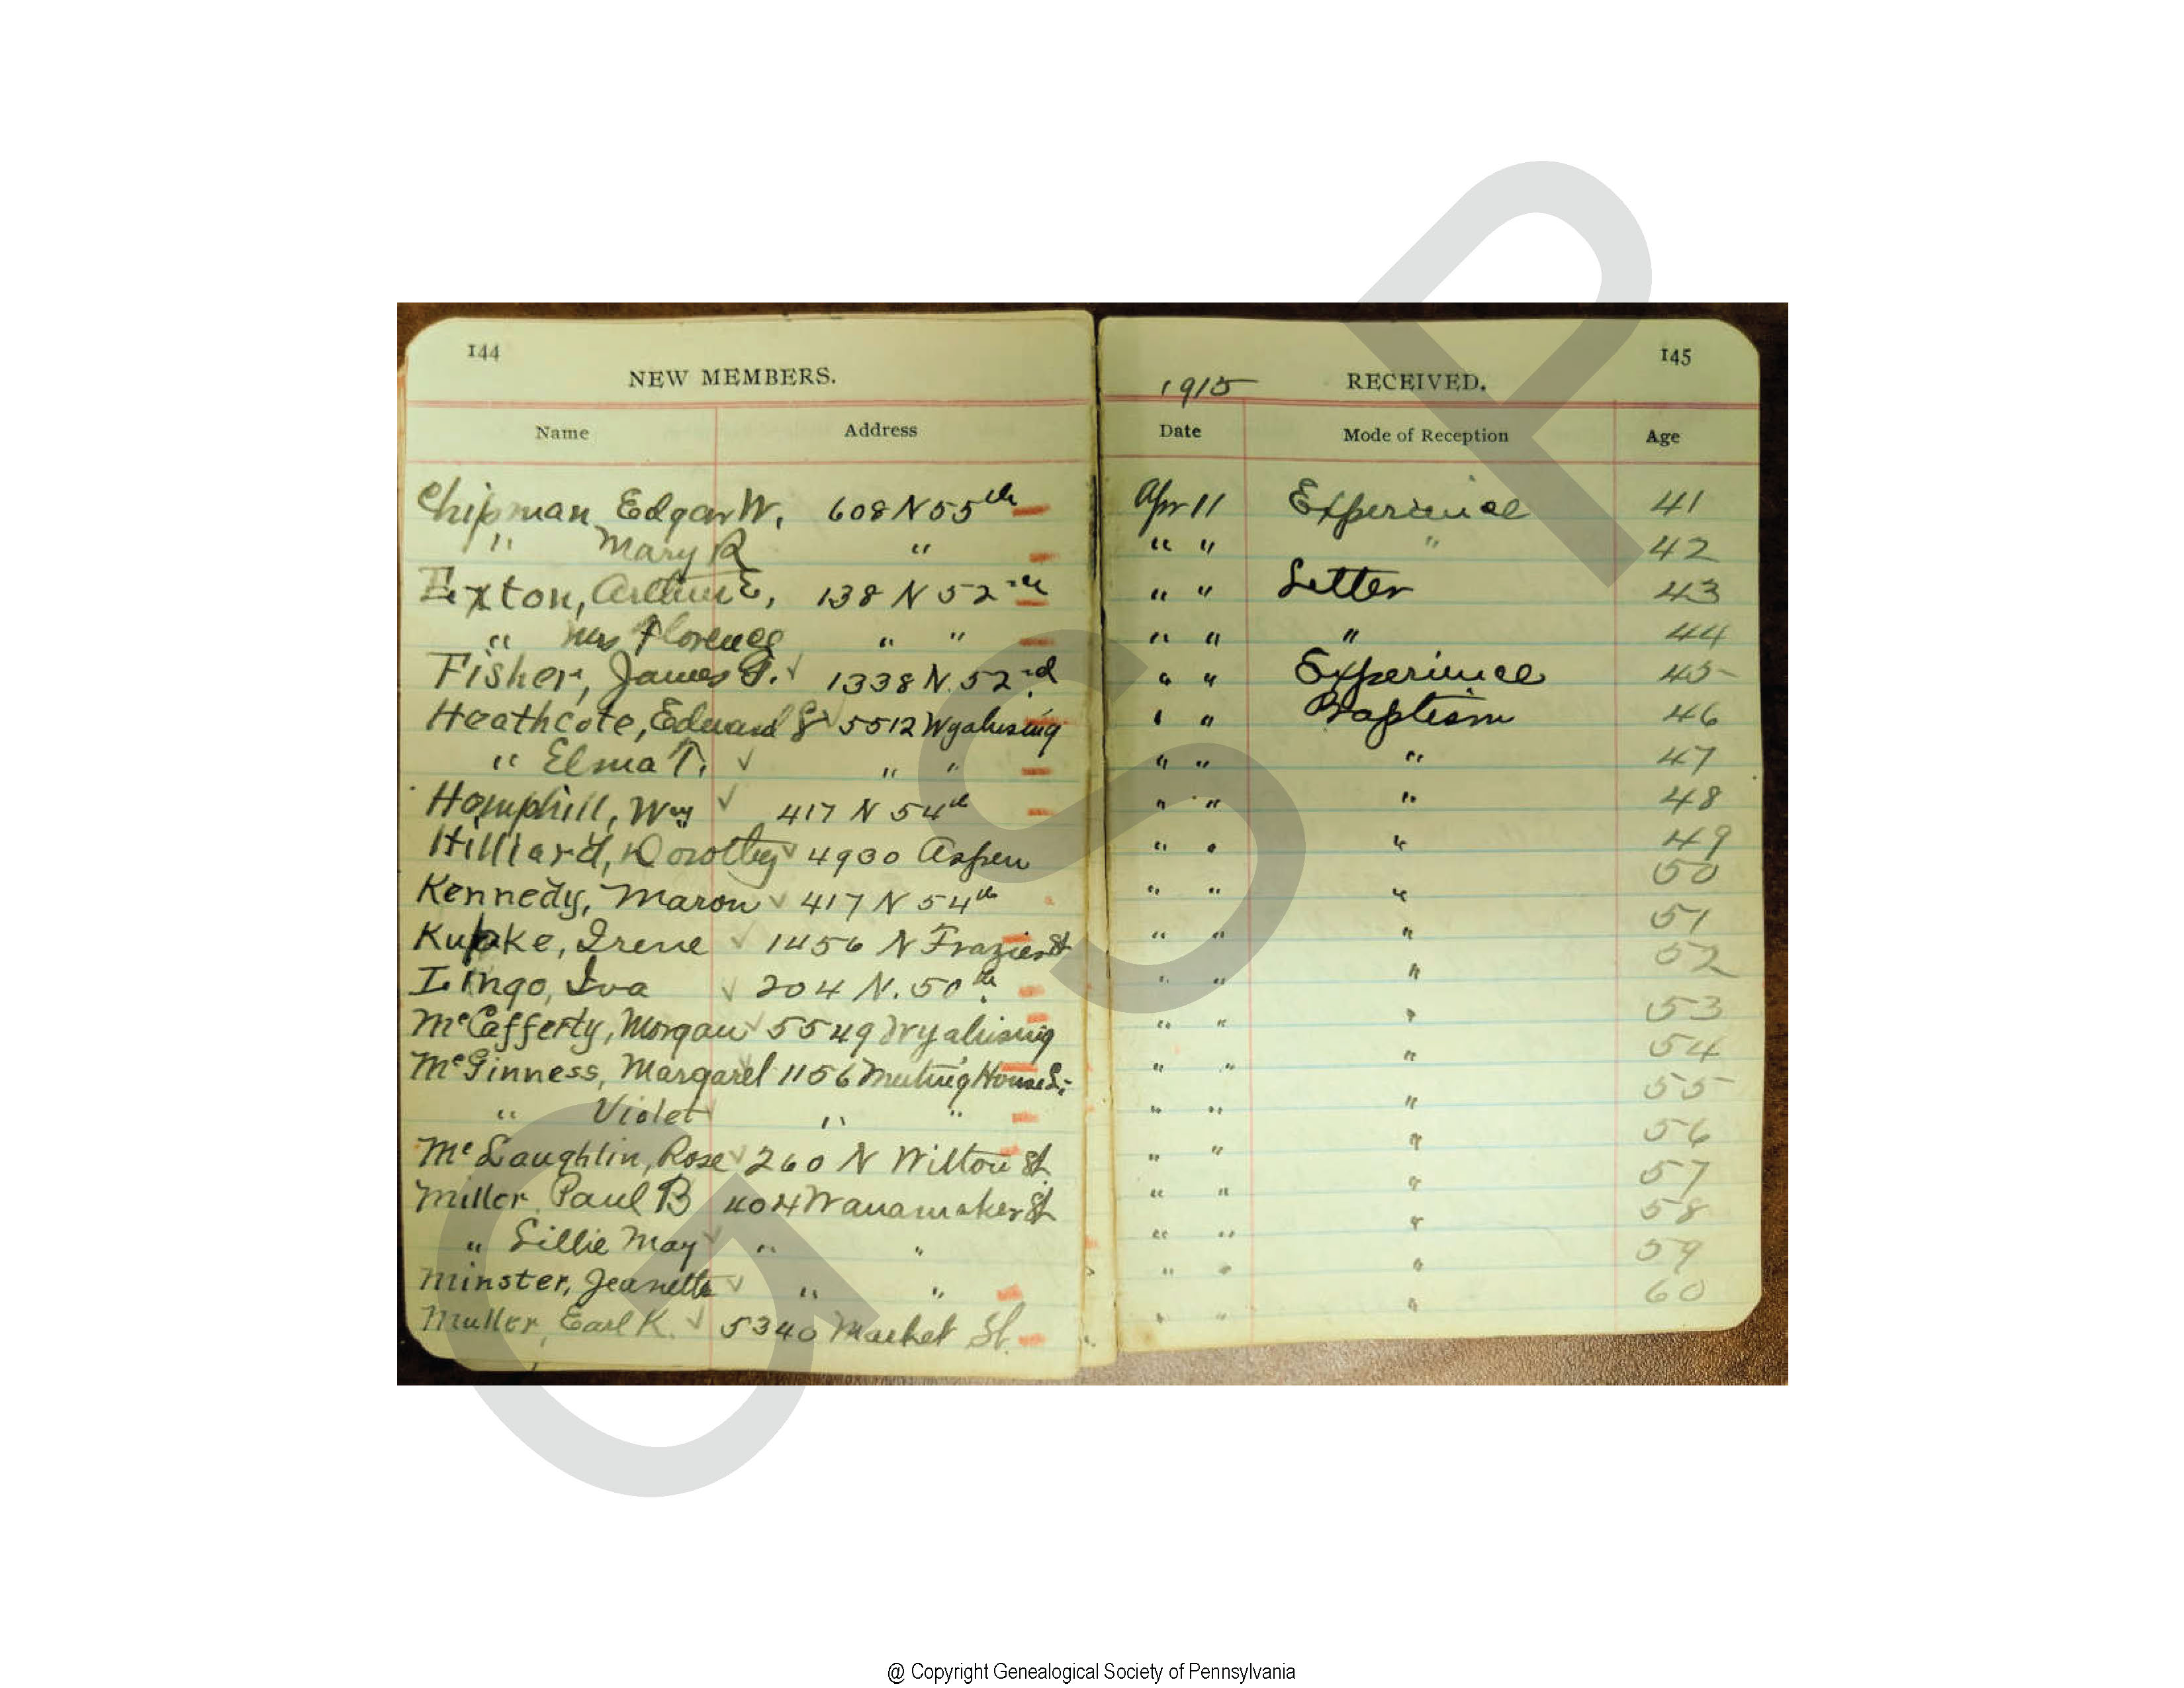 144
NEW MEMBERS.
Name Address
Chipman Edgar W. 608 N 55th
" Mary R "
Exton, Arthur E, 138 N 52nd
" Mrs Florence " "
Fisher, James T. ✓ 1338 N. 52nd
Heathcote, Edward S ✓ 5512 Wyalusing
" Elma T. ✓ " "
Hemphill, Wm ✓ 417 N 54th
Hilliard, Dorothy ✓ 4930 Aspen
Kennedy, Maron ✓ 417 N 54th
Kupke, Irene ✓ 1456 N Frazier St
Lingo, Iva ✓ 204 N. 50th
McCafferty, Morgan ✓ 5549 Wyalusing
McGinness, Margaret 1156 Meeting House L.
" Violet " "
McLaughlin, Rose ✓ 260 N Wilton St.
Miller Paul B 404 Wanamaker St
" Lillie May ✓ " "
Minster, Jeanette ✓ " "
Muller, Earl K. ✓ 5340 Market St.
145
1915 RECEIVED.
Date Mode of Reception Age
Apr 11 Experience 41
" " " 42
" " Letter 43
" " " 44
" " Experience 45
" " Baptism 46
" " " 47
" " " 48
" " " 49
" " " 50
" " " 51
" " " 52
" " " 53
" " " 54
" " " 55
" " " 56
" " " 57
" " " 58
" " " 59
" " " 60
GSP
@ Copyright Genealogical Society of Pennsylvania